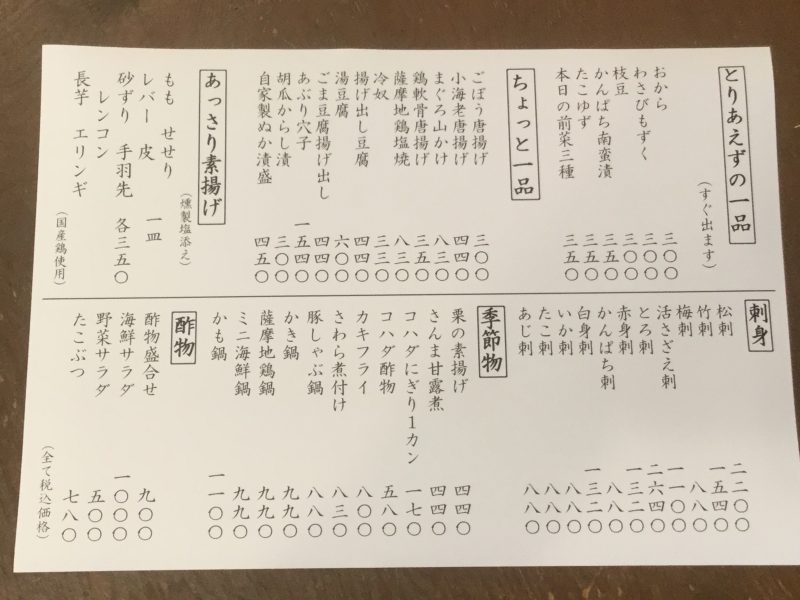 とりあえずの一品
(すぐ出ます)
おから 三〇〇
わさびもずく 三〇〇
枝豆 三〇〇
かんぱち南蛮漬 三五〇
たこゆず 三五〇
本日の前菜三種 三五〇
ちょっと一品
ごぼう唐揚げ 三〇〇
小海老唐揚げ 四四〇
まぐろ山かけ 八三〇
鶏軟骨唐揚げ 三五〇
薩摩地鶏塩焼 八三〇
冷奴 三三〇
揚げ出し豆腐 四四〇
湯豆腐 六〇〇
ごま豆腐揚げ出し 四四〇
あぶり穴子 一五四〇
胡瓜からし漬 三〇〇
自家製ぬか漬盛 四五〇
あっさり素揚げ
(燻製塩添え)
もも せせり
レバー 皮 一皿
砂ずり 手羽先 各三五〇
レンコン
長芋 エリンギ
(国産鶏使用)
刺身
松刺 二二〇〇
竹刺 一五四〇
梅刺 八八〇
活さざえ刺 一一〇〇
とろ刺 二六四〇
赤身刺 一三二〇
かんぱち刺 八八〇
白身刺 一三二〇
いか刺 八八〇
たこ刺 八八〇
あじ刺 八八〇
季節物
栗の素揚げ 四四〇
さんま甘露煮 四四〇
コハダにぎり1カン 一七〇
コハダ酢物 五八〇
カキフライ 八〇〇
さわら煮付け 八三〇
豚しゃぶ鍋 八八〇
かき鍋 九九〇
薩摩地鶏鍋 九九〇
ミニ海鮮鍋 九九〇
かも鍋 一一〇〇
酢物
酢物盛合せ 九〇〇
海鮮サラダ 一〇〇〇
野菜サラダ 五〇〇
たこぶつ 七八〇
(全て税込価格)